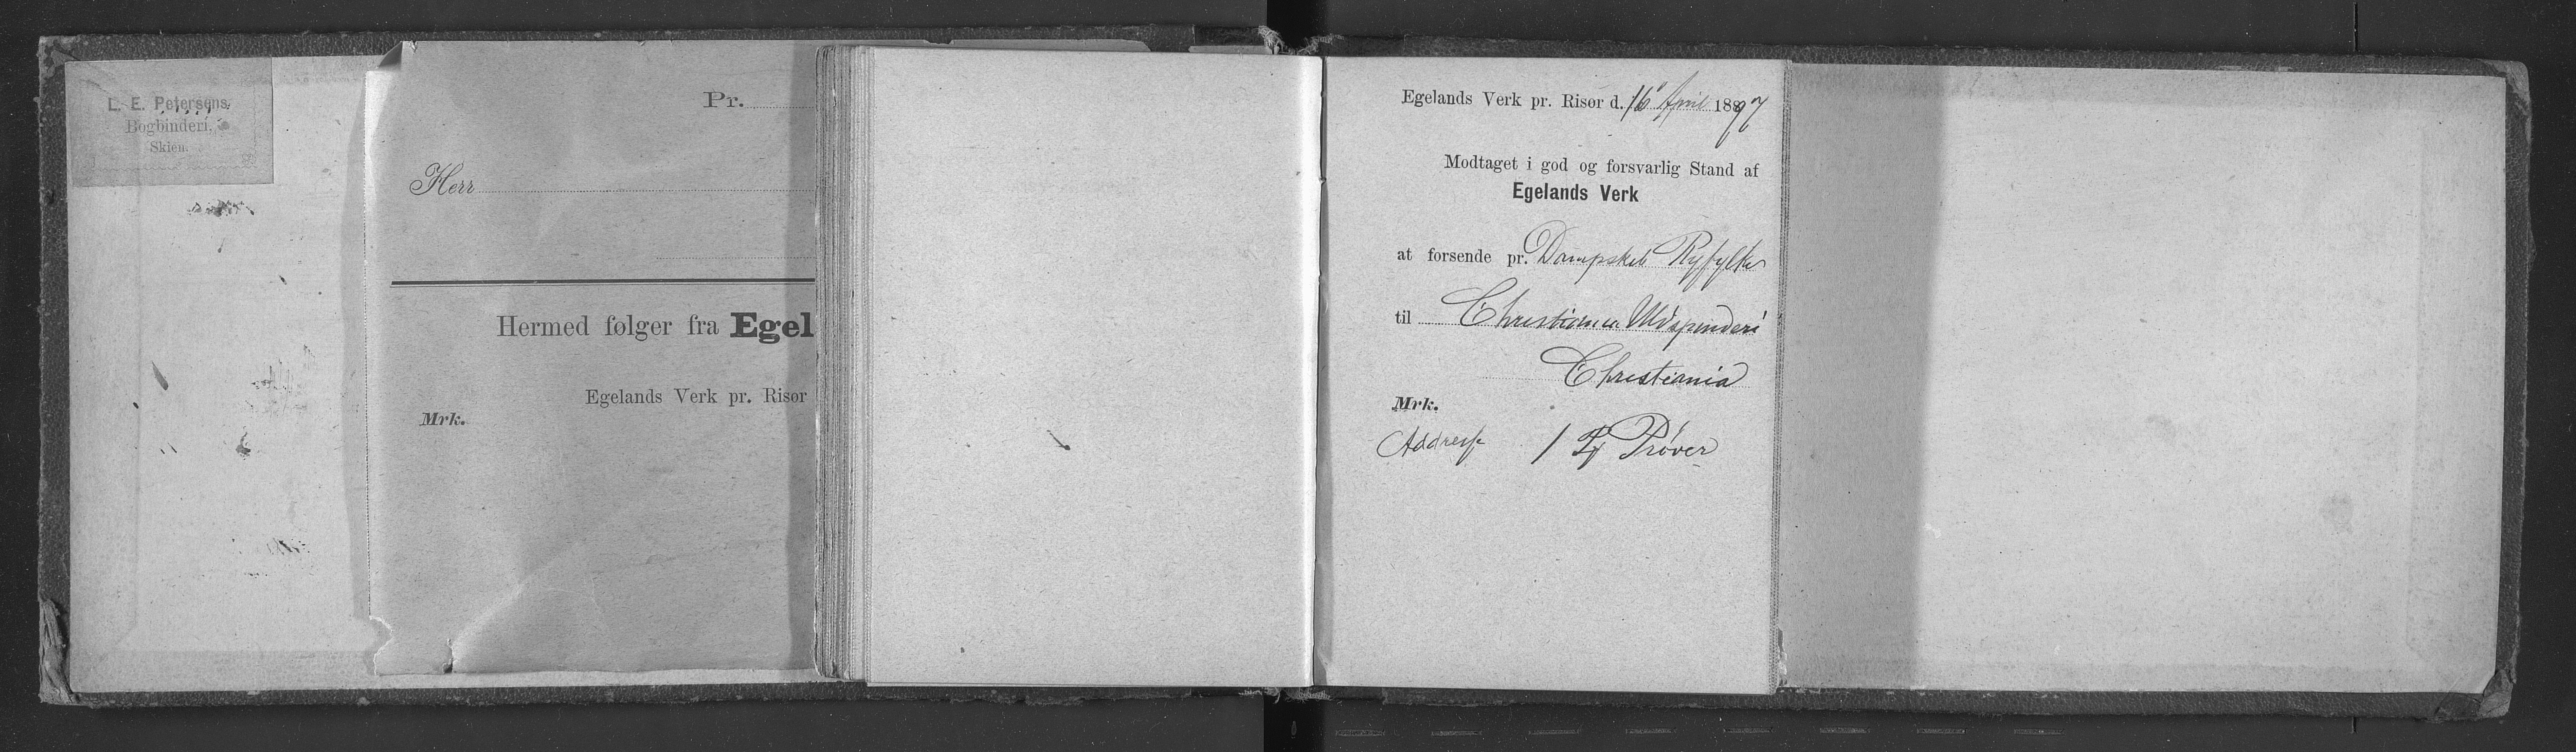 L. E. Petersens
Bogbinderi.
Skien.
Pr.
Herr
Hermed følger fra Egel
Egelands Verk pr. Risør
Mrk.
Egelands Verk pr. Risør d. 16 April 1897
Modtaget i god og forsvarlig Stand af
Egelands Verk
at forsende pr. Dampskib Ryfylke
til Christiania Uldspinderi
Christiania
Mrk.
Addresse 1 Prøver